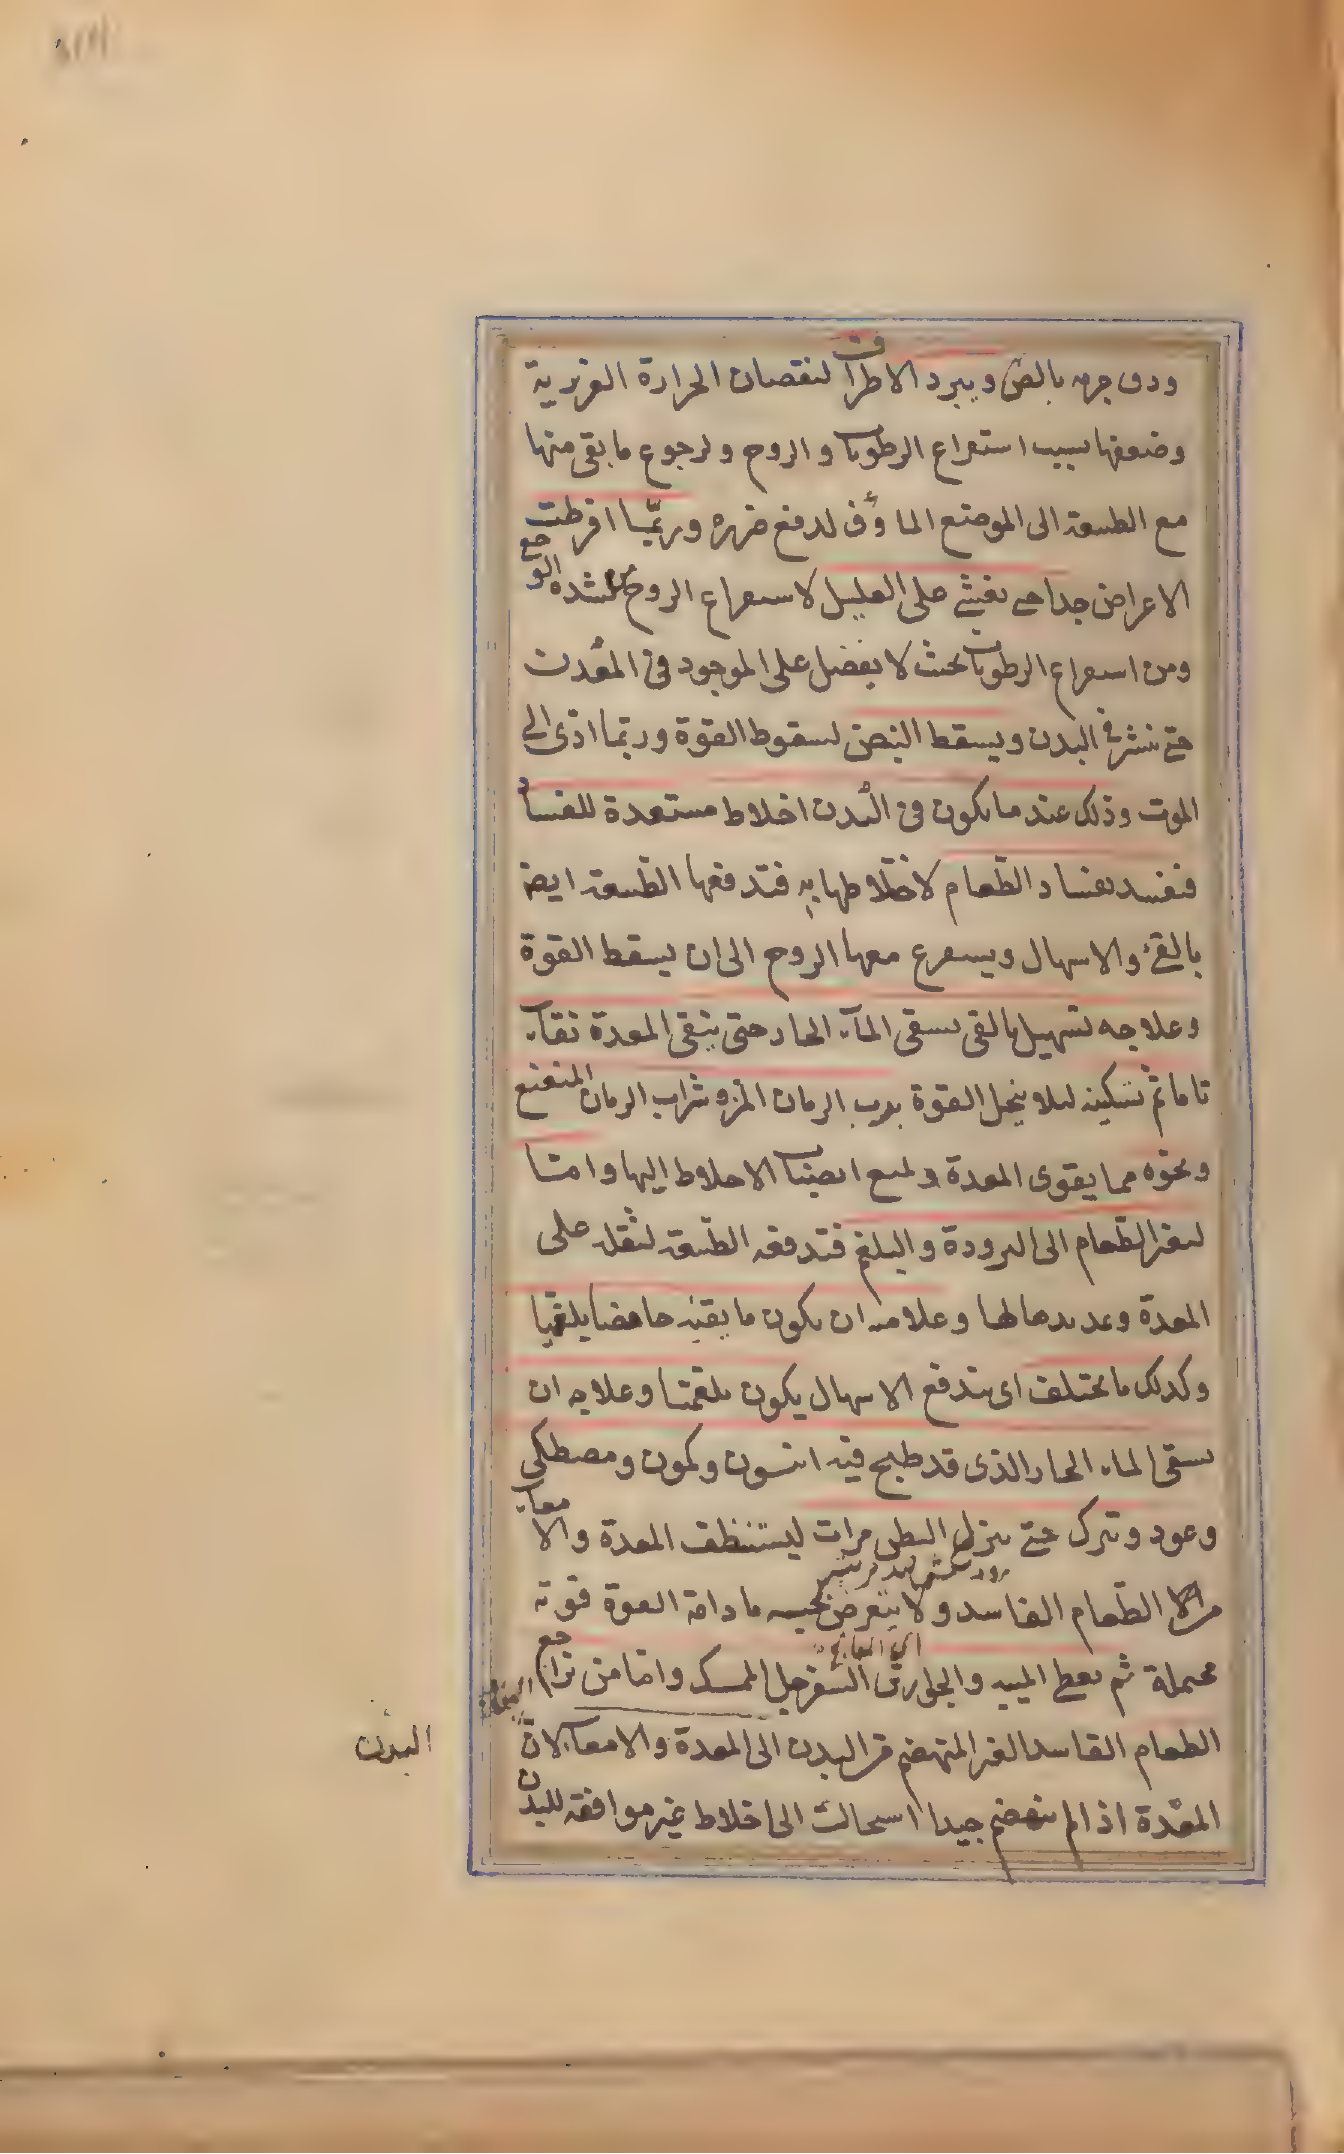 ويبرد الاطراف لنقصان الحرارة الغريزية
وضعفها بسبب استفراغ الرطوبات والروح ولرجوع ما بقى منها
مع الطبيعة الى الموضع الماؤف لدفع ضرره وربّما افرطت
الاعراض جدا حتى يغشى على العليل لاستفراغ الروح لشدة الوجع
ومن استفراغ الرطوبات بحيث لا يفضل على الموجود فى المعدة
حتى ينشر فى البدن ويسقط النبض لسقوط القوة وربّما ادّى الى
الموت وذلك عند ما يكون فى البدن اخلاط مستعدة للفساد
فتفسد بفساد الطّعام لاختلاطها به فتدفعها الطّبيعة ايضا
بالقئ والاسهال ويستفرغ معها الروح الى ان يسقط القوة
وعلاجه تسهيل القى بسقى المآء الحار حتى ينقى المعدة نقاء
تاما ثم تسكينه لئلا ينحل القوة برب الرمان المز وشراب الرمان المنعنع
ونحوه مما يقوى المعدة ويمنع انصباب الاخلاط اليها وامّا
لتغير الطّعام الى البرودة والبلغم فتدفعه الطّبيعة لثقله على
المعدة وتمديدها لها وعلامته ان يكون ما يقيئه حامضا بلغميا
وكذلك ما يختلف اى يندفع بالاسهال يكون بلغميّا وعلاجه ان
يسقى الماء الحار الذى قد طبخ فيه انيسون وكمون ومصطكى
وعود ويترك حتى ينزل البطن مرات ليستنظف المعدة والامعاء
من الطّعام الفاسد ولا يتعرض لحبسه ما دامت القوة قوية
محتملة ثم يعطى الميبه والجوارش السفرجلى الممسك وامّا من تراجع
الطعام الفاسد الغير المنهضم من البدن الى المعدة والامعاء لان
المعدة اذا لم ينهضم جيدا استحالت الى اخلاط غير موافقة للبدن
البدن